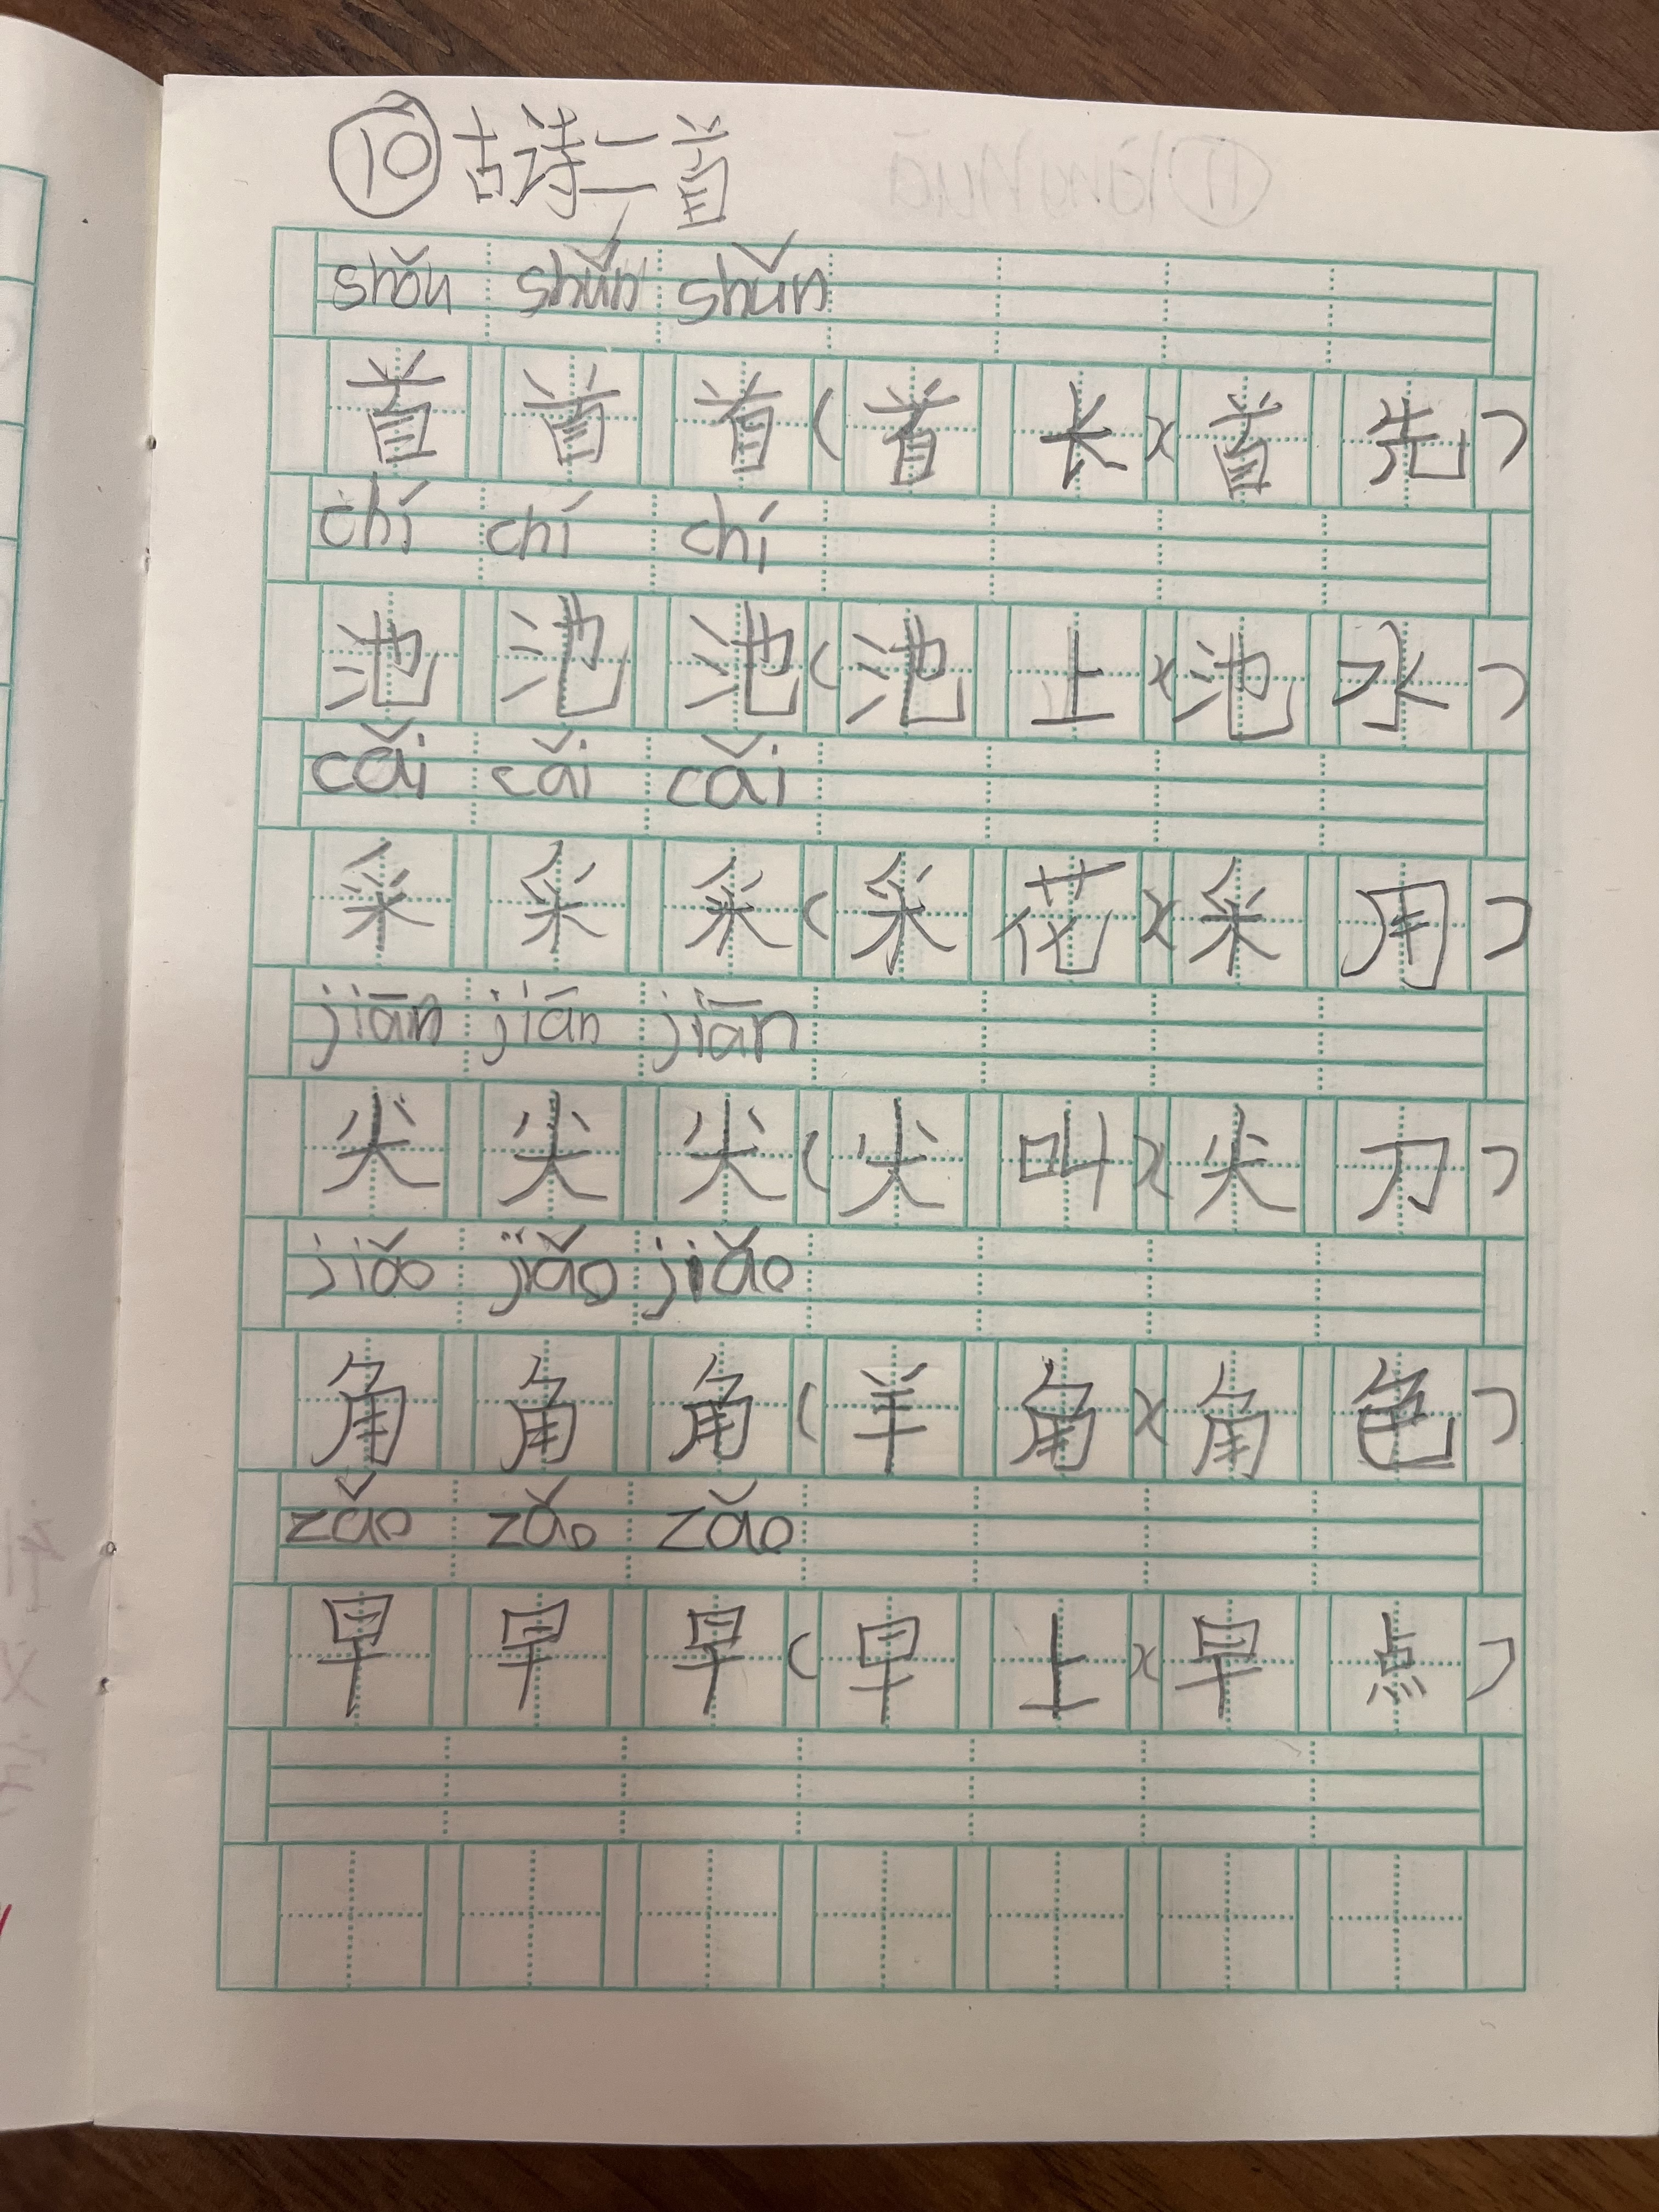 ⑩古诗二首
shǒu shǔn shǔn
首 首 首 ( 首 长 )( 首 先 )
chí chí chí
池 池 池 ( 池 上 )( 池 水 )
cǎi cǎi cǎi
采 采 采 ( 采 花 )( 采 用 )
jiān jiān jiān
尖 尖 尖 ( 尖 叫 )( 尖 刀 )
jiǎo jiǎo jiǎo
角 角 角 ( 羊 角 )( 角 色 )
zǎo zǎo zǎo
早 早 早 ( 早 上 )( 早 点 )